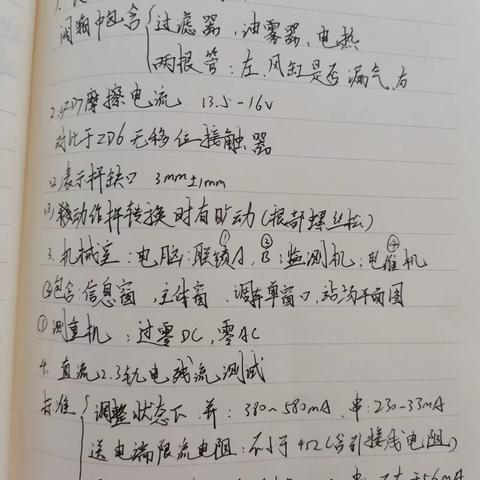 阀箱中包含{过滤器、油雾器、电热
两根管:左,风缸是否漏气,右
2.ZD7摩擦电流 13.5-16v
对比于ZD6无移位接触器
(2)表示杆缺口 3mm±1mm
(3)移动作杆转换时有旷动(根部螺丝松)
3.机械室:电脑:联锁A,B;监测机;电维机
③包含:信息窗,主体窗、调车单窗口,站场平面图
①测重机:过零DC,零AC
4.直流2.3轨电残流测试
标准{调整状态下 并:380~580mA,串:230-33mA
送电端限流电阻:不小于4Ω(含引接线电阻)